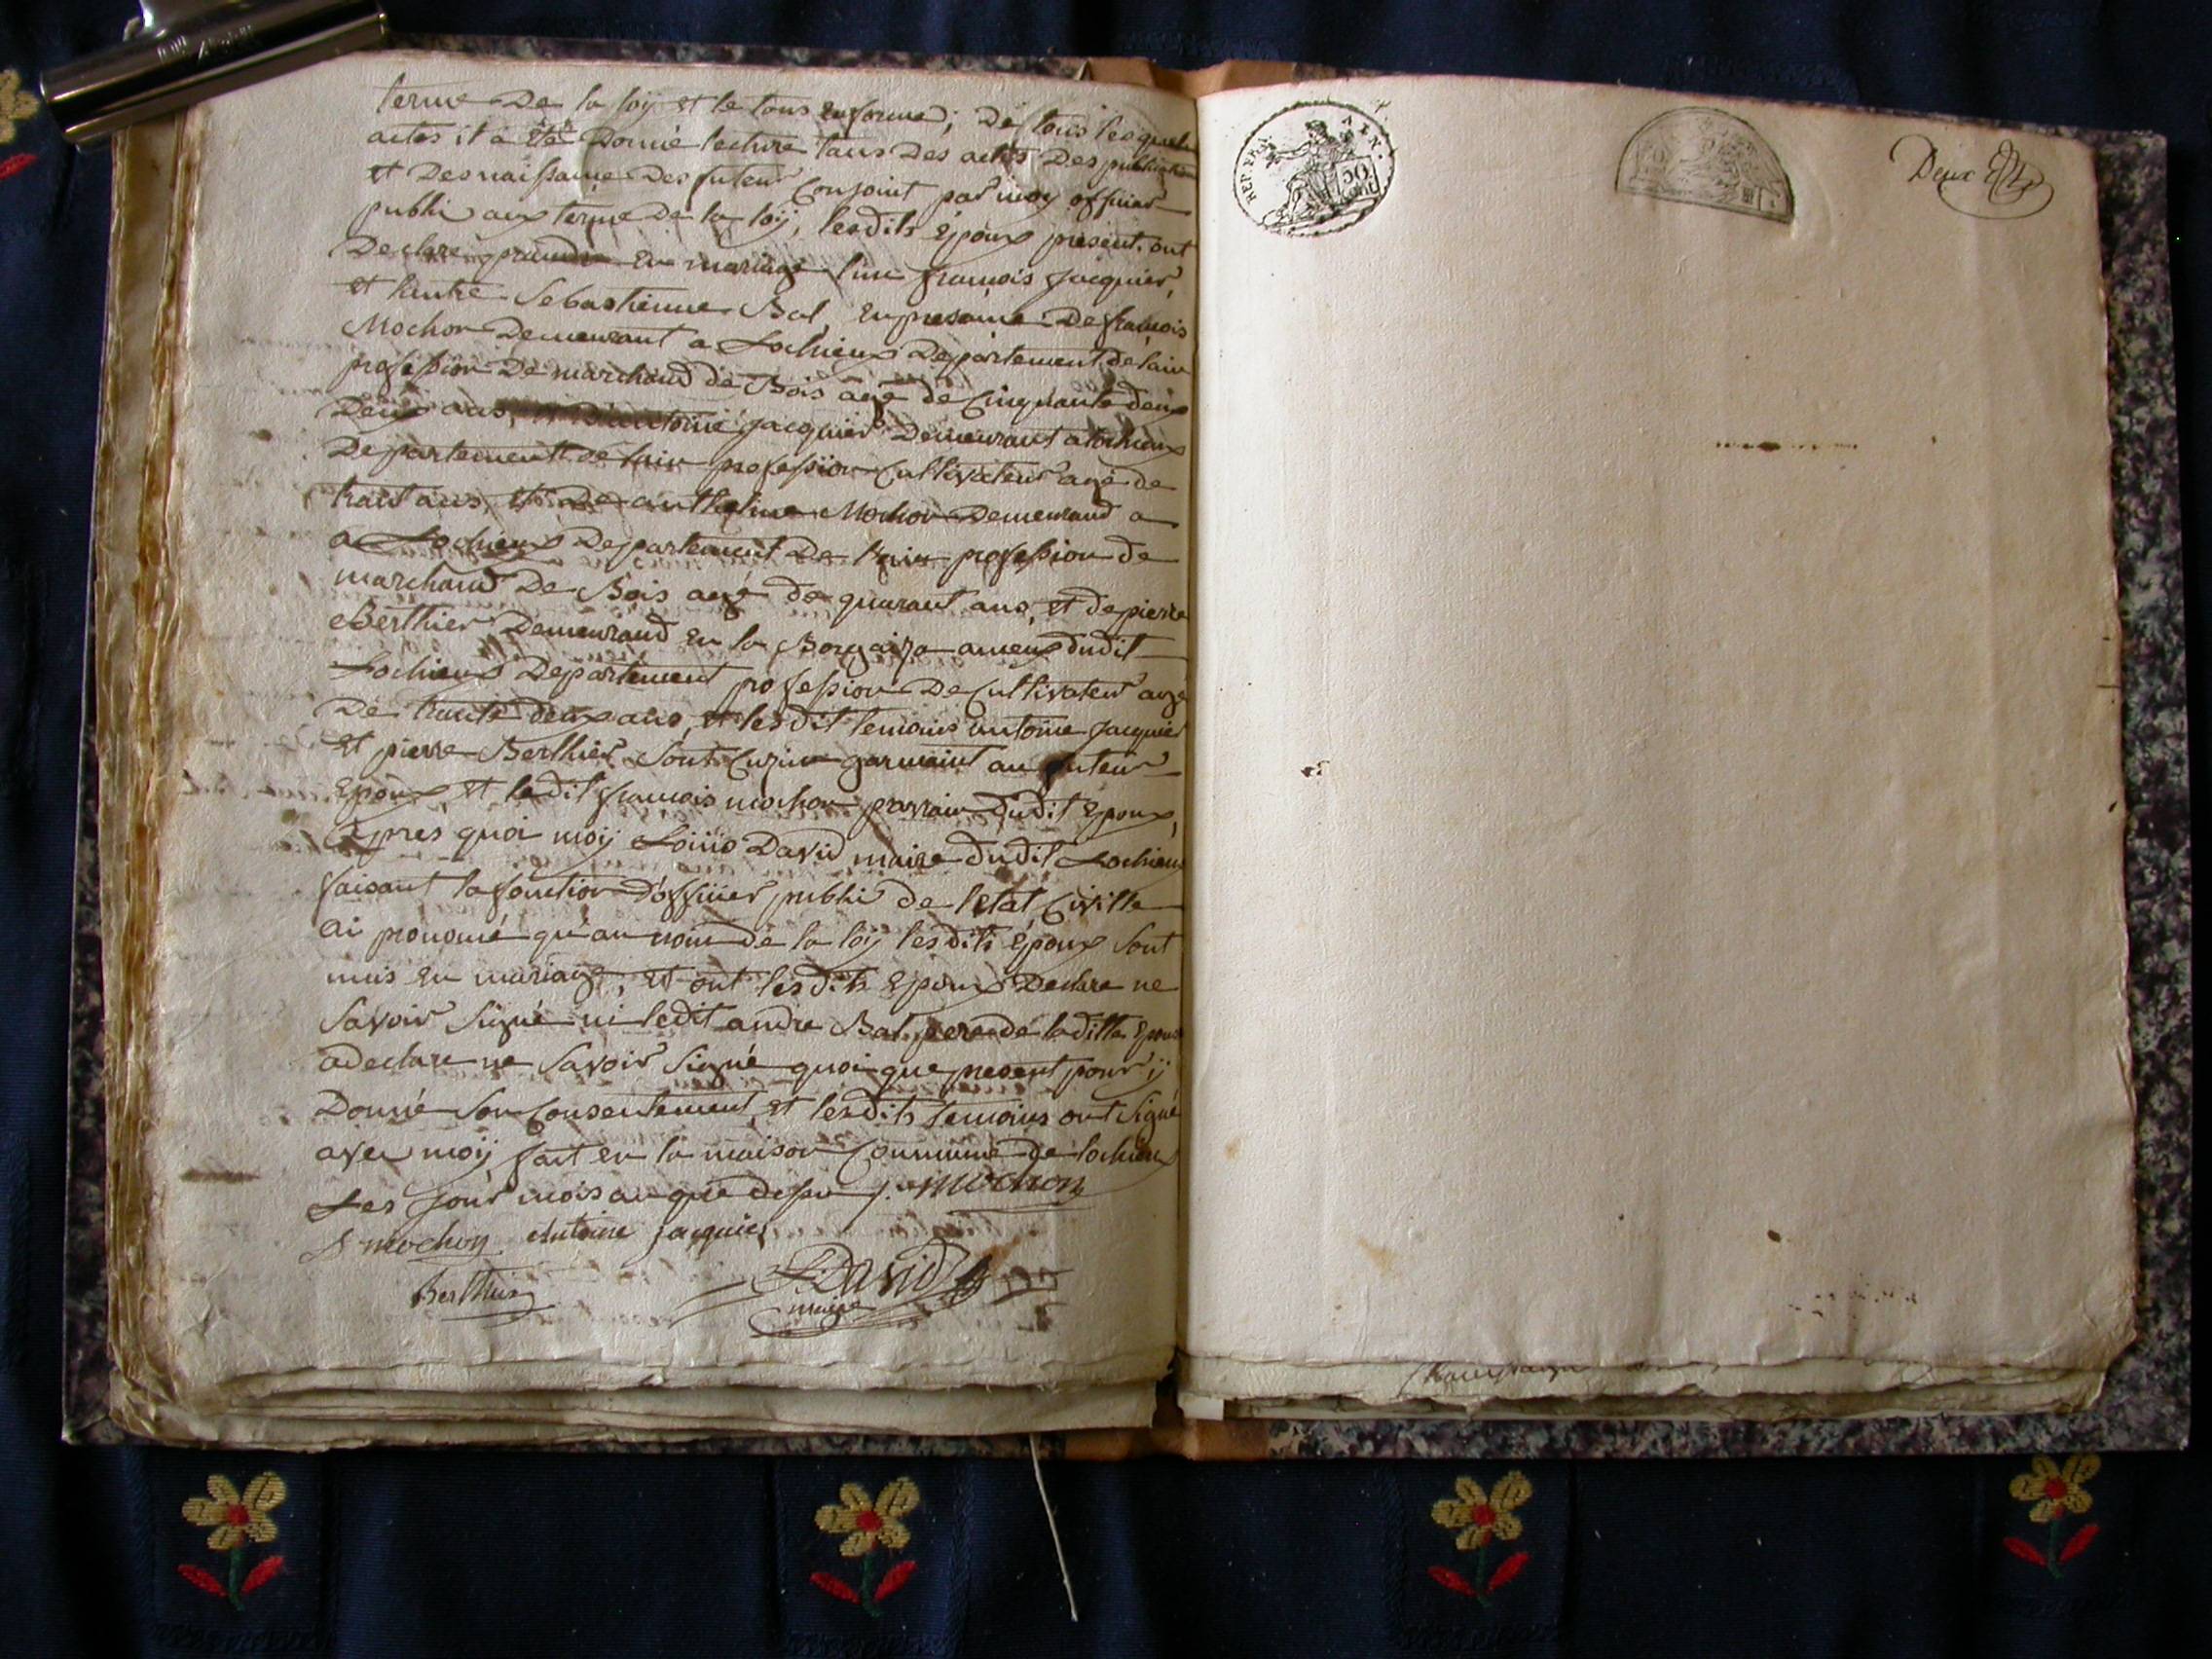 terme De la loy et le tous en forme; De tous lesquels
actes il a été Donné lecture tans Des actes Des publication
et Des naissance Des futeur Conjoint par moy officier
public aux terme De la loy, lesdits Epoux present ont
Declare prandre En mariage l'un françois Jacquier,
et l'autre Sebastienne Bal En presance De françois
Mochon Demeurant a Lochieux Departement de lain
profession De marchand de Bois agé de Cinquante deux
Deux ans, Jacquier Demeurant a lochieux
Departement de lain profession Cultivateur agé de
trait ans, et De anthelme Mochon Demeurand a
a Lochieux Departement De l'ain profession de
marchand De Bois agé de quarant ans, et de pierre
Berthier Demeurand en la dudit
Lochieux Departement profession De Cultivateur agé
De trante deux ans, et lesdit temoins antoine Jacquier
et pierre Berthier sont Cuzin germaint au futeur
Epoux et ledit francois mochon parrain dudit Epoux,
Apres quoi moy Louis David maire dudit Lochieux
faisant la fonction D'officier public de l'etat Civille
ai prononcé qu'au nom de la loy lesdits Epoux sont
unis en mariage, et ont lesdits Epoux Declare ne
Savoir Signé ni ledit andre Bal pere de laditte Epouse
a declare ne Savoir Signé quoi que present pour ÿ
Donné Son Consentement et lesdits temoins ont Signé
avec moy fait en la maison Commune de lochieux
Les jour mois an que dessu f. mochon
A mochon Antoine jacquier
Berthier L. David
maire
REP. FRA. AIN.
50
Deux